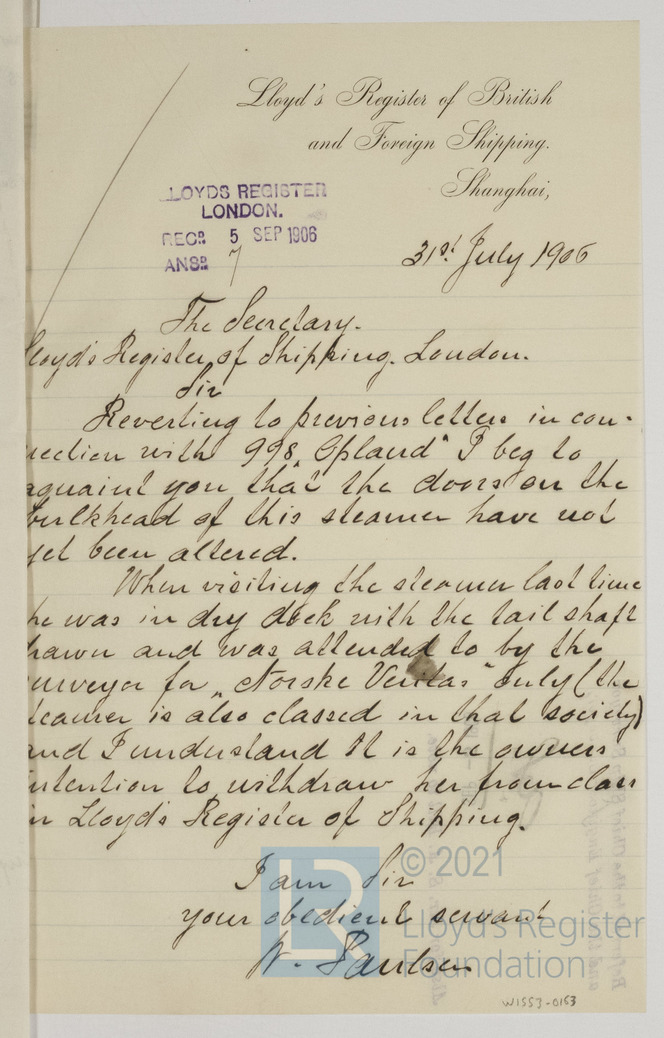 Lloyd's Register of British
and Foreign Shipping.
Shanghai,
LLOYDS REGISTER
LONDON.
REC? 5 SEP 1906
ANS? 7
31st July 1906
The Secretary.
Lloyd's Register of Shipping. London.
Sir
Reverting to previous letters in con-
nection with 998 "Opland" I beg to
aquaint you that the doors on the
bulkhead of this steamer have not
yet been altered.
When visiting the steamer last time
he was in dry dock with the tail shaft
drawn and was attended to by the
surveyor for "Norske Veritas" only (the
steamer is also classed in that society)
and I understand it is the owners
intention to withdraw her from class
in Lloyd's Register of Shipping.
I am Sir
your obedient servant
W. Paulsen
© 2021
Lloyd's Register
Foundation
LR
W1553-0153